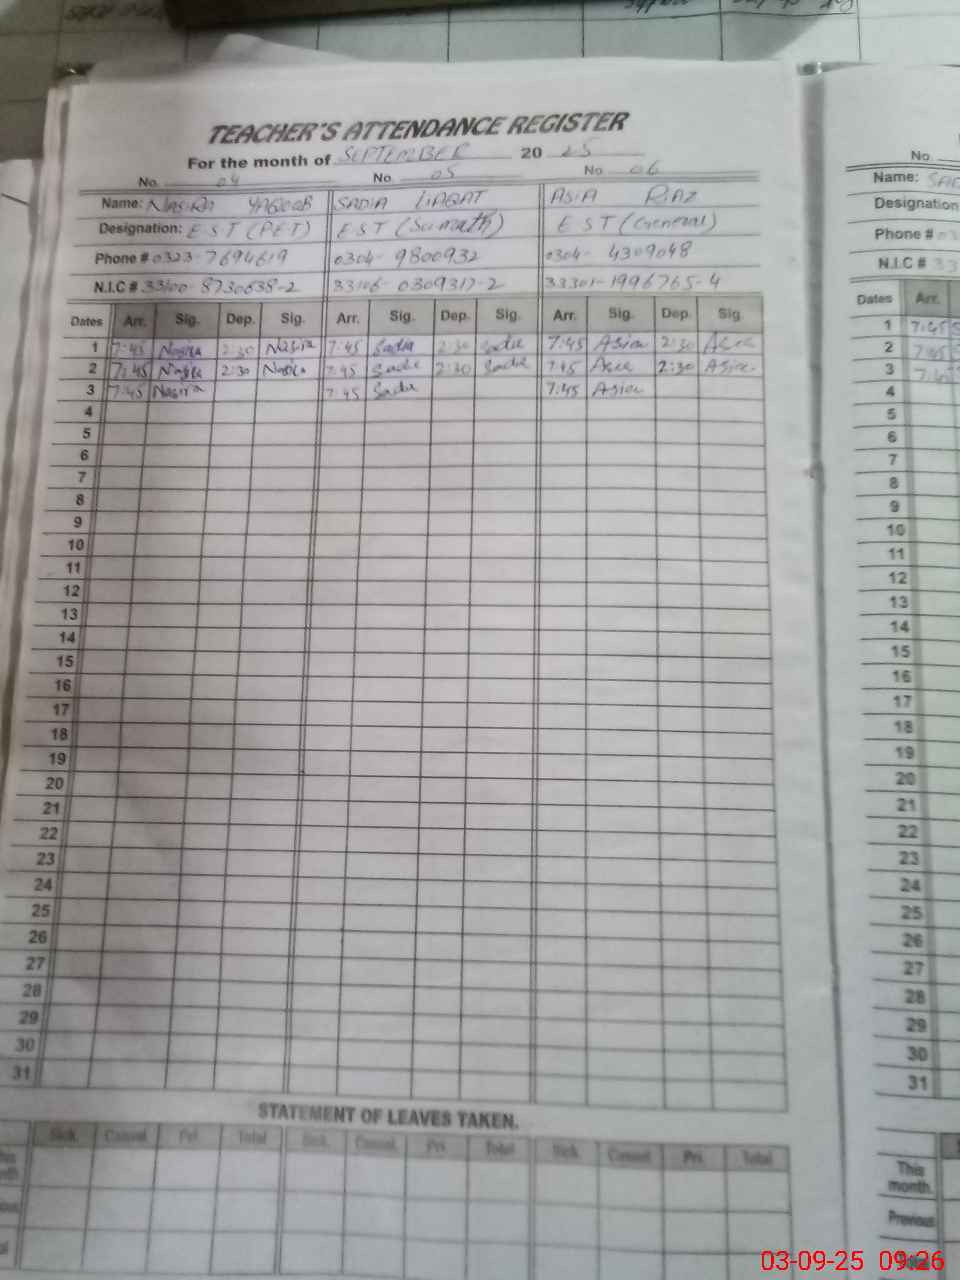 TEACHER'S ATTENDANCE REGISTER
For the month of SEPTEMBER 20 25
No. 04 No. 05 No. 06
Name: NASIRA YAQOOB SADIA LIAQAT ASIA RIAZ
Designation: E S T (P.E.T) E S T (Sci-math) E S T (General)
Phone # 0323-7694619 0304-9800932 0304-4309048
N.I.C # 33100-8730638-2 33106-0309317-2 33301-1996765-4
Dates Arr. Sig. Dep. Sig. Arr. Sig. Dep. Sig. Arr. Sig. Dep. Sig.
1 7:45 Nasira 2:30 Nasira 7:45 Sadia 2:30 Sadia 7:45 Asia 2:30 Asia
2 7:45 Nasira 2:30 Nasira 7:45 Sadia 2:30 Sadia 7:45 Asia 2:30 Asia
3 7:45 Nasira 7:45 Sadia 7:45 Asia
4
5
6
7
8
9
10
11
12
13
14
15
16
17
18
19
20
21
22
23
24
25
26
27
28
29
30
31
STATEMENT OF LEAVES TAKEN.
Sick. Casual Pri. Total Sick. Casual Pri. Total Sick. Casual Pri. Total
No.
Name: SAD
Designation
Phone # 03
N.I.C # 33
Dates Arr.
1 7:45
2 7:45
3 7:4
4
5
6
7
8
9
10
11
12
13
14
15
16
17
18
19
20
21
22
23
24
25
26
27
28
29
30
31
This
month.
Previous
03-09-25 09:26